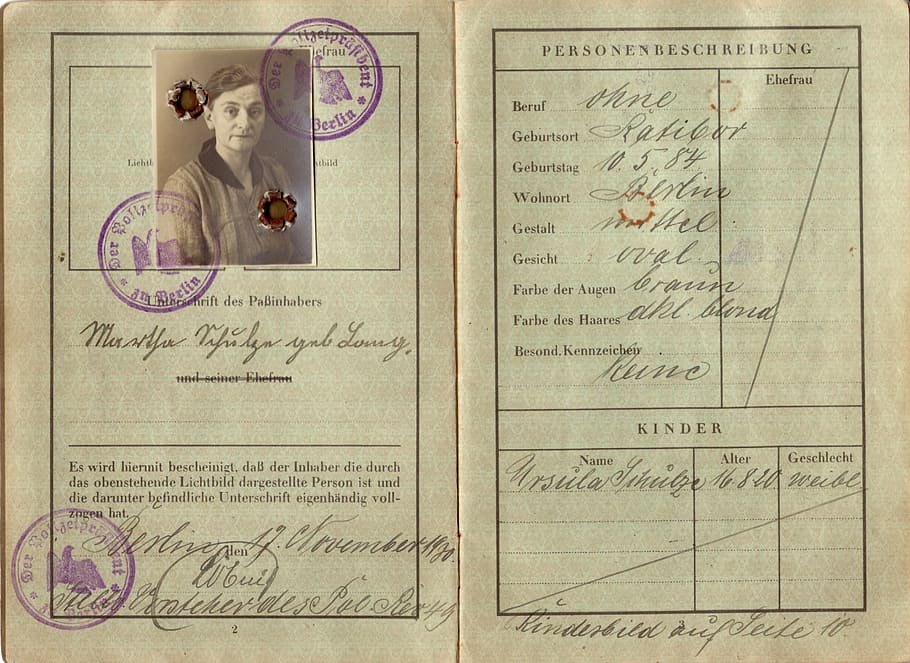 Ehefrau
Lichtbild
Der Polizeipräsident zu Berlin
Der Polizeipräsident zu Berlin
Unterschrift des Paßinhabers
Martha Schulze geb Lang.
und seiner Ehefrau
Es wird hiermit bescheinigt, daß der Inhaber die durch
das obenstehende Lichtbild dargestellte Person ist und
die darunter befindliche Unterschrift eigenhändig voll-
zogen hat.
Berlin, den 17. November 1930.
Der Polizeipräsident zu Berlin
Vorsteher des Pol Rev 49
2
PERSONENBESCHREIBUNG
Ehefrau
Beruf ohne
Geburtsort Ratibor
Geburtstag 10. 5. 84
Wohnort Berlin
Gestalt mittel
Gesicht oval
Farbe der Augen braun
Farbe des Haares dkl. blond
Besond. Kennzeichen
Keine
KINDER
Name Alter Geschlecht
Ursula Schulze 16.8.20 weibl
Kinderbild auf Seite 10